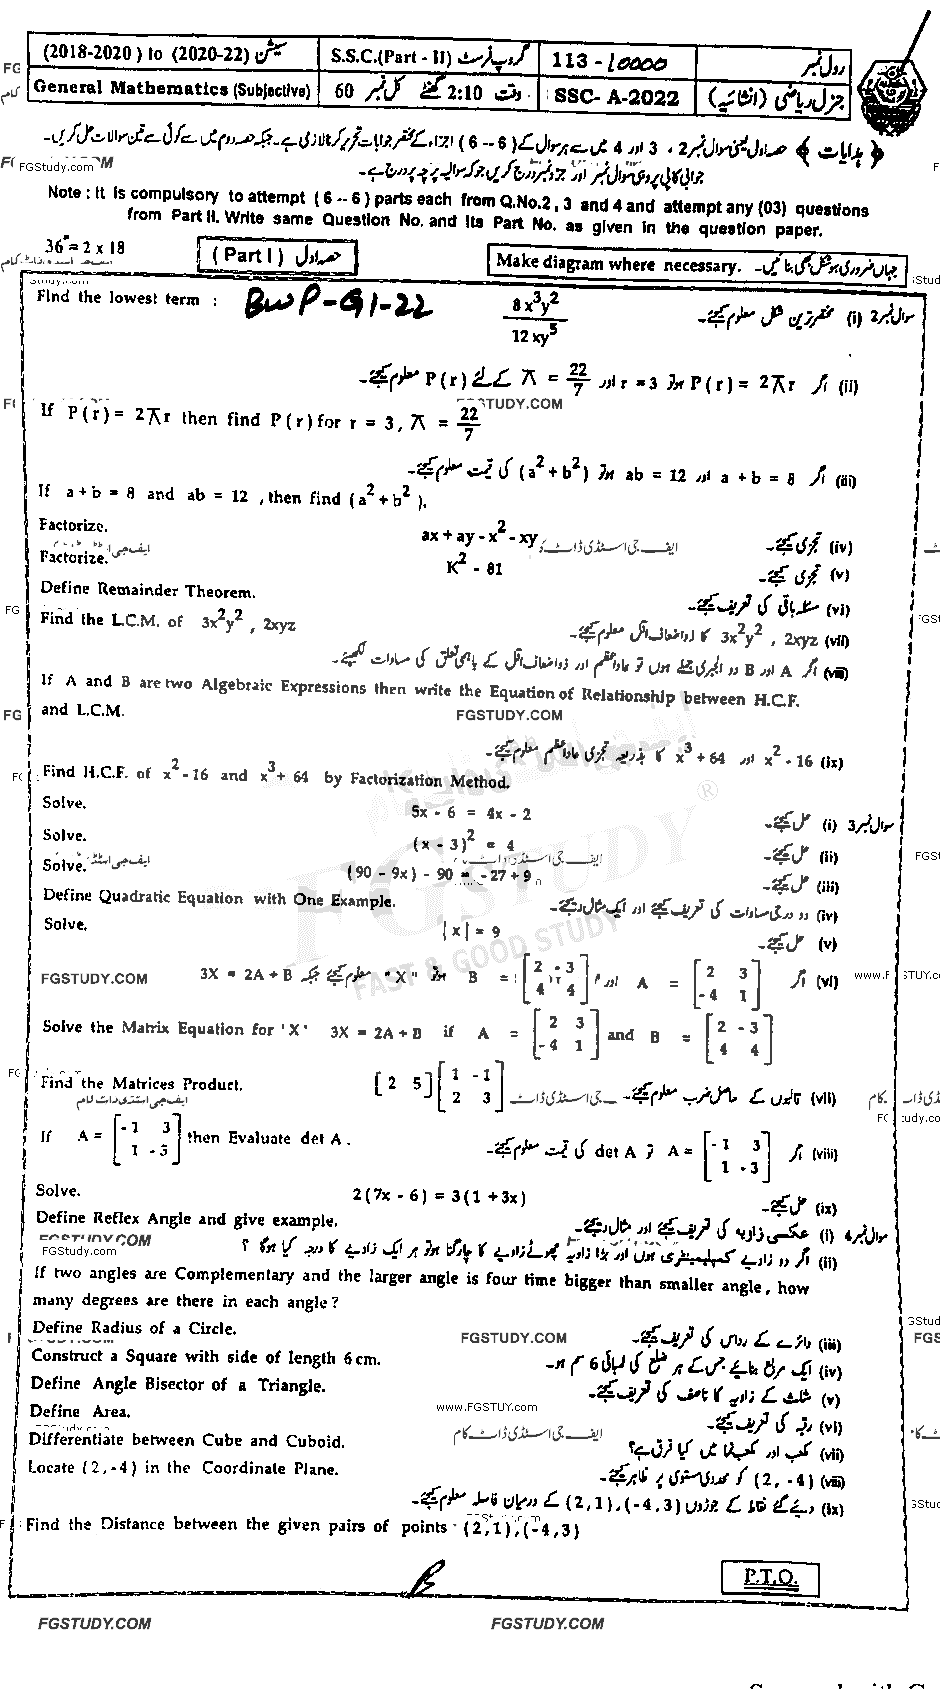 (2018-2020) to (2020-22) سیشن
S.S.C.(Part - II) گروپ فرسٹ
113-10000
رول نمبر
General Mathematics (Subjective)
وقت 2:10 گھنٹے کل نمبر 60
SSC-A-2022
جنرل ریاضی (انشائیہ)
﴿ ہدایات ﴾ حصہ اول یعنی سوال نمبر 2 ، 3 اور 4 میں سے ہر سوال کے (6 -- 6) اجزاء کے مختصر جوابات تحریر کرنا لازمی ہے۔ جبکہ حصہ دوم میں سے کوئی سے تین سوالات حل کریں۔
جوابی کاپی پر وہی سوال نمبر اور جزو نمبر درج کریں جو کہ سوالیہ پرچہ پر درج ہے۔
Note : It is compulsory to attempt (6 -- 6) parts each from Q.No.2 , 3 and 4 and attempt any (03) questions
from Part II. Write same Question No. and its Part No. as given in the question paper.
36 = 2 x 18
(Part I) حصہ اول
Make diagram where necessary. جہاں ضروری ہو شکل بھی بنائیں۔
Find the lowest term : BWP-G1-22 8x³y² / 12xy⁵ سوال نمبر 2 (i) مختصر ترین شکل معلوم کیجئے۔
(ii) اگر P(r) = 2πr ہو تو r = 3 اور π = 22/7 کے لئے P(r) معلوم کیجئے۔
FGSTUDY.COM
If P(r) = 2πr then find P(r) for r = 3, π = 22/7
(iii) اگر a + b = 8 اور ab = 12 ہو تو (a² + b²) کی قیمت معلوم کیجئے۔
If a + b = 8 and ab = 12 , then find (a² + b²).
Factorize. ax + ay - x² - xy (iv) تجزی کیجئے۔
Factorize. K² - 81 (v) تجزی کیجئے۔
Define Remainder Theorem. (vi) مسئلہ باقی کی تعریف کیجئے۔
Find the L.C.M. of 3x²y² , 2xyz (vii) 3x²y² , 2xyz کا ذواضعاف اقل معلوم کیجئے۔
(viii) اگر A اور B دو الجبری جملے ہوں تو عاداعظم اور ذواضعاف اقل کے باہمی تعلق کی مساوات لکھیئے۔
If A and B are two Algebraic Expressions then write the Equation of Relationship between H.C.F.
and L.C.M. FGSTUDY.COM
(ix) x² - 16 اور x³ + 64 کا بذریعہ تجزی عاداعظم معلوم کیجئے۔
Find H.C.F. of x² - 16 and x³ + 64 by Factorization Method.
Solve. 5x - 6 = 4x - 2 سوال نمبر 3 (i) حل کیجئے۔
Solve. (x - 3)² = 4 (ii) حل کیجئے۔
Solve. (90 - 9x) - 90 = -27 + 9 (iii) حل کیجئے۔
Define Quadratic Equation with One Example. (iv) دو درجی مساوات کی تعریف کیجئے اور ایک مثال دیجئے۔
Solve. |x| = 9 (v) حل کیجئے۔
FGSTUDY
FAST & GOOD STUDY
FGSTUDY.COM
(vi) اگر A = [2 3 / -4 1] اور B = [2 -3 / 4 4] ہو تو "X" معلوم کیجئے جبکہ 3X = 2A + B
Solve the Matrix Equation for 'X' 3X = 2A + B if A = [2 3 / -4 1] and B = [2 -3 / 4 4]
Find the Matrices Product. [2 5] [1 -1 / 2 3] (vii) قالبوں کے حاصل ضرب معلوم کیجئے۔
If A = [-1 3 / 1 -3] then Evaluate det A. (viii) اگر A = [-1 3 / 1 -3] تو det A کی قیمت معلوم کیجئے۔
Solve. 2(7x - 6) = 3(1 + 3x) (ix) حل کیجئے۔
Define Reflex Angle and give example. سوال نمبر 4 (i) عکسی زاویہ کی تعریف کیجئے اور مثال دیجئے۔
FGStudy.com
(ii) اگر دو زاویے کمپلیمینٹری ہوں اور بڑا زاویہ چھوٹے زاویے کا چار گنا ہو تو ہر ایک زاویے کا درجہ کیا ہوگا ؟
If two angles are Complementary and the larger angle is four time bigger than smaller angle, how
many degrees are there in each angle?
Define Radius of a Circle. FGSTUDY.COM (iii) دائرے کے رداس کی تعریف کیجئے۔
Construct a Square with side of length 6 cm. (iv) ایک مربع بنائیے جس کے ہر ضلع کی لمبائی 6 سم ہو۔
Define Angle Bisector of a Triangle. (v) مثلث کے زاویہ کا ناصف کی تعریف کیجئے۔
Define Area. www.FGSTUY.com (vi) رقبہ کی تعریف کیجئے۔
Differentiate between Cube and Cuboid. ایف جی اسٹڈی ڈاٹ کام (vii) مکعب اور مکعب نما میں کیا فرق ہے؟
Locate (2, -4) in the Coordinate Plane. (viii) (2, -4) کو محددی مستوی پر ظاہر کیجئے۔
(ix) دیئے گئے نقاط کے جوڑوں (2,1),(-4,3) کے درمیان فاصلہ معلوم کیجئے۔
Find the Distance between the given pairs of points (2,1),(-4,3)
P.T.O.
FGSTUDY.COM FGSTUDY.COM